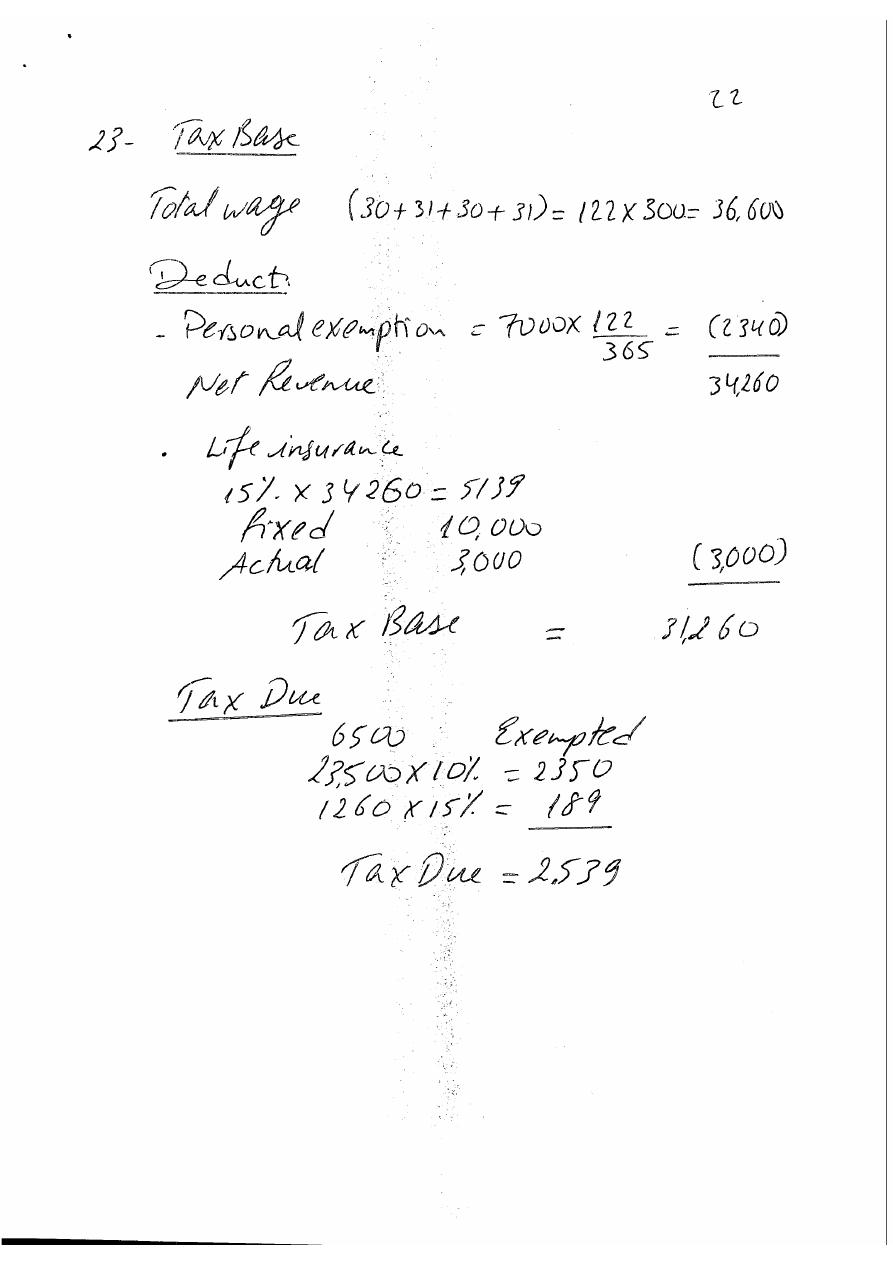 22
23- Tax Base
Total wage (30+31+30+31)= 122 X 300= 36,600
Deduct:
- Personal exemption = 7000X 122/365 = (2340)
Net Revenue 34,260
. Life insurance
15%. X 34260 = 5139
Fixed 10,000
Actual 3,000 (3,000)
Tax Base = 31,260
Tax Due
6500 Exempted
23,500 X 10% = 2350
1260 X 15% = 189
Tax Due = 2,539